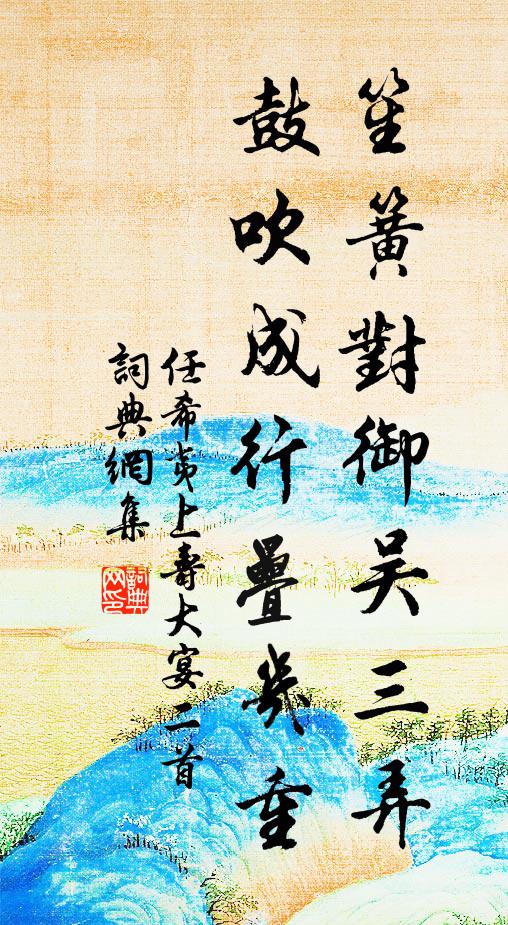 笙簧對御吴三弄
鼓吹成行疊幾重
任希夷上壽大宴二首
詞典網集
詞典網印